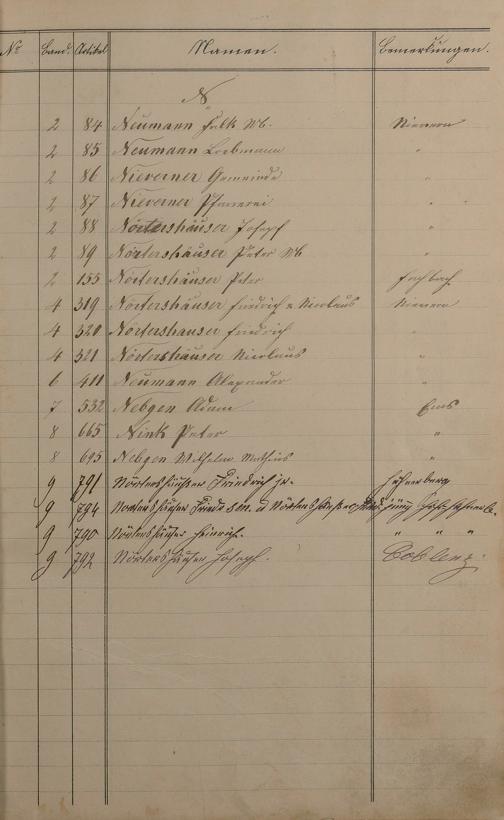 No Band. Artikel Namen. Bemerkungen.
N
2 84 Neumann Falk Wb. Nievern
2 85 Neumann "
2 86 Nieverner Gemeinde "
2 87 Nieverner Pfarrei "
2 88 Nörtershäuser Joseph "
2 89 Nörtershäuser Peter Wb "
2 155 Nörtershäuser Peter Fachbach
4 319 Nörtershäuser Friedrich u Nicolaus Nievern
4 320 Nörtershäuser Friedrich "
4 321 Nörtershäuser Nicolaus "
6 411 Neumann Alexander "
7 532 Nebgen Adam Ems
8 665 Nink Peter "
8 695 Nebgen Wilhelm Mathias "
9 791 Nörtershäuser Friedrich jr.
9 794 Nörtershäuser sen. u Nörtershäuser
9 790 Nörtershäuser Heinrich. " " "
9 792 Nörtershäuser Joseph. Coblenz.